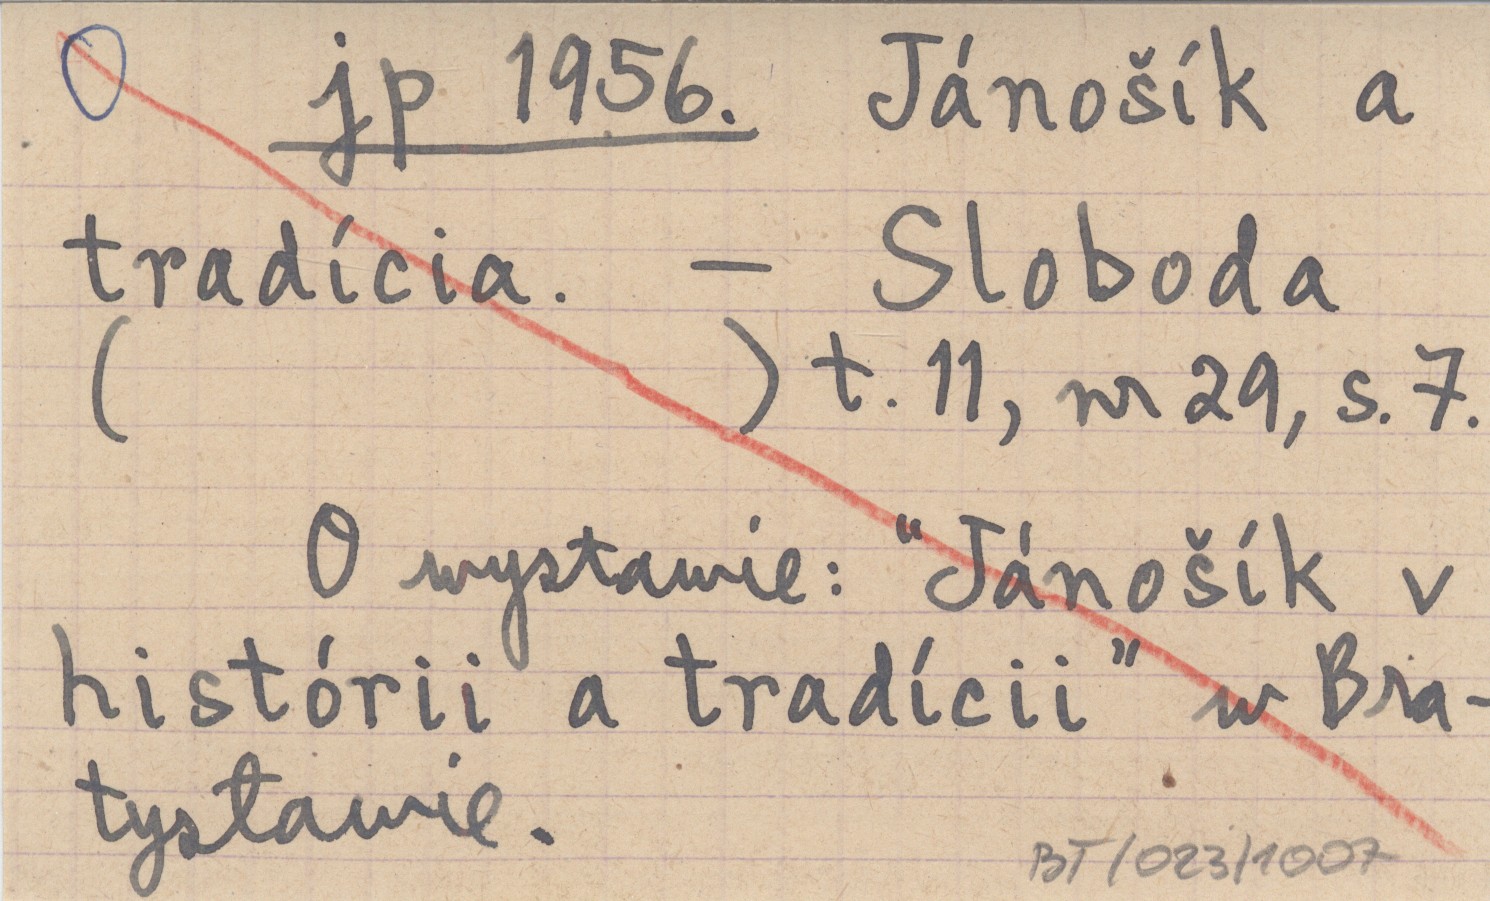 jp 1956. Jánošík a
tradícia. — Sloboda
( ) t. 11, nr 29, s. 7.
O wystawie: "Jánošík v
histórii a tradícii" w Bra-
tysławie.
BT/023/1007